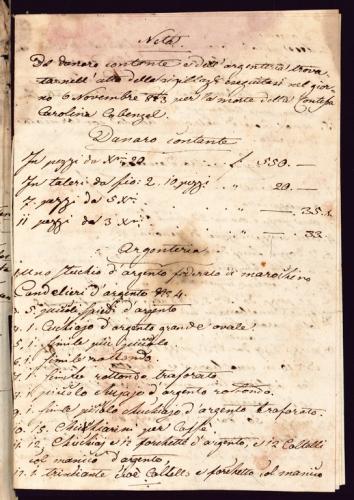 Nota
Del danaro contante e dell'argenteria trova
ta nell'atto della sigillaz. eseguitasi nel gior
no 6 Novembre 1813 per la morte della Contessa
Carolina Cobenzel
Danaro contante
In pezzi da Xni 20 . . . f 559. —
In talleri da fio: 2. 10 pezzi . . " 20. —
7. pezzi da 5 Xni . . . " — 35 x
11 pezzi da 3 Xni . . . " — 33.
Argenteria
1. Uno stuchio d'argento foderato di marochino
Candelieri d'argento No 4.
3. 5. piccoli d'argento
4. 1. Cuchiajo d'argento grande ovale.
5. 1. simile più piccolo
6. 1. simile rottondo.
7. 1. simile rottondo traforato
8. 1. piccolo chujajo d'argento rotondo.
9. 1. simile picolo chuchiajo d'argento traforato.
10. 15. Chuchiarini per Caffè
11. 12. Chuchiaj e 12 forchette d'argento, e 12 Coltelli
col manico d'argento.
12. 1. trinciante cioè Coltello e forchetta col manico